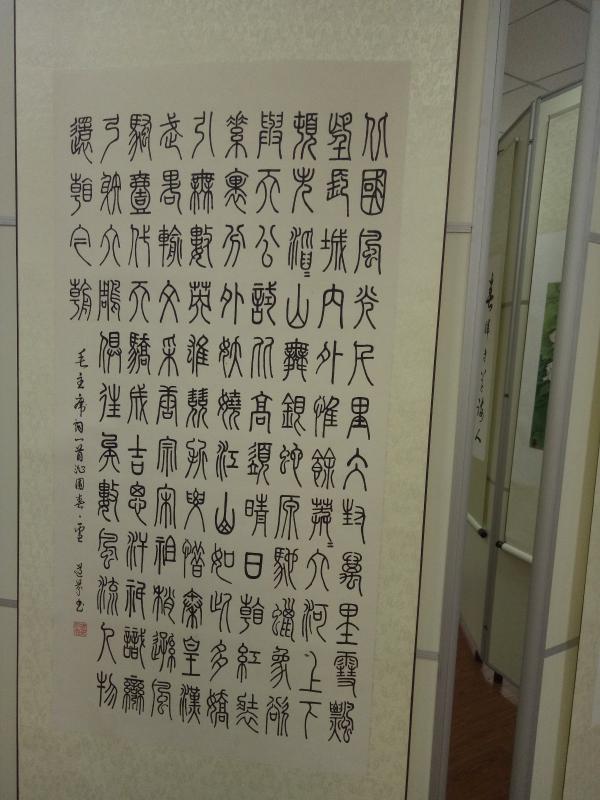 北國風光千里冰封萬里雪飄
望長城內外惟餘莽=大河上下
頓失滔=山舞銀蛇原馳蠟象欲
與天公試比高須晴日看紅裝
素裹分外妖嬈江山如此多嬌
引無數英雄競折腰惜秦皇漢
武畧輸文采唐宗宋祖稍遜風
騷壹代天驕成吉思汗祇識彎
弓射大鵰俱往矣數風流人物
還看今朝
毛主席詞一首沁園春·雪 書